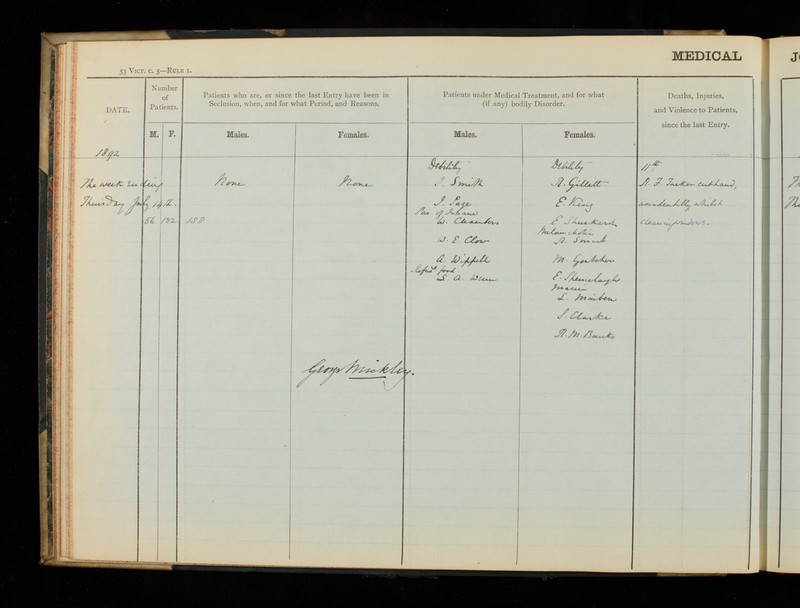 MEDICAL
53 VICT. C. 5—RULE 1.
DATE.
Number of Patients.
M. F.
Patients who are, or since the last Entry have been in Seclusion, when, and for what Period, and Reasons.
Males.
Females.
Patients under Medical Treatment, and for what (if any) bodily Disorder.
Males.
Females.
Deaths, Injuries,
and Violence to Patients,
since the last Entry.
1892
The week ending
Thursday July 14th
56 132 188
None
None
Debility
J. Smith
J. Page
W. Chambers
W. E. Clow
A. Wippell
S. A.
Debility
A. Gillett
E. King
E.
Melancholia
A. Smith
M.
E.
Mania
S. Clarke
A. M. Banks
11th
A. F. Tucker cut hand,
accidentally whilst
cleaning windows.
George Mickley.